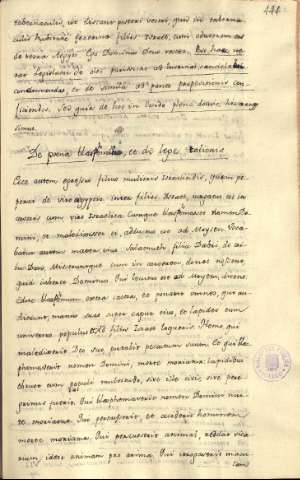 144.
tabernaculis, ut discant posteri vestri, quod in taberna
culis habitare fecerim filios Israel, cum educerem eos
de terra Aegypti. Ego Dominus Deus vester.
De poena blasphemiae, et de lege talionis
Ecce autem egressus filius mulieris Israelitidis, quem pe
perat de viro aegyptio inter filios Israel, iurgatus est in
castris cum viro Israelita. Cumque blasphemasset nomen Domi
ni, et maledixisset ei, adductus est ad Moysen. Voca
batur autem mater eius Salumith filia Dabri, de
tribu Dan. Miseruntque eum in carcerem, donec nossent,
quid iuberet Dominus. Qui locutus est ad Moysen, dicens:
Educ blasphemum extra castra, et ponant omnes, qui au
dierunt, manus suas super caput eius, et lapidet eum
universus populus. filios Israel loqueris: Homo, qui
maledixerit Deo suo, portabit peccatum suum. Et qui blas
phemaverit nomen Domini, morte moriatur: lapidibus
populi multitudo, sive ille civis, sive pere
grinus fuerit. Qui blasphemaverit nomen Domini mor
te moriatur. Qui percusserit, et occiderit hominem
morte moriatur. Qui percusserit animal, reddat vica
rium, idest animam pro anima. Qui irrogaverit macu
lam